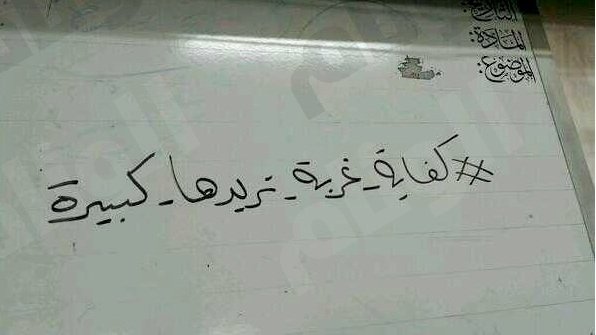 التاريخ:
المادة:
الموضوع:
#كفاية_غربة_نريدها_كبيرة